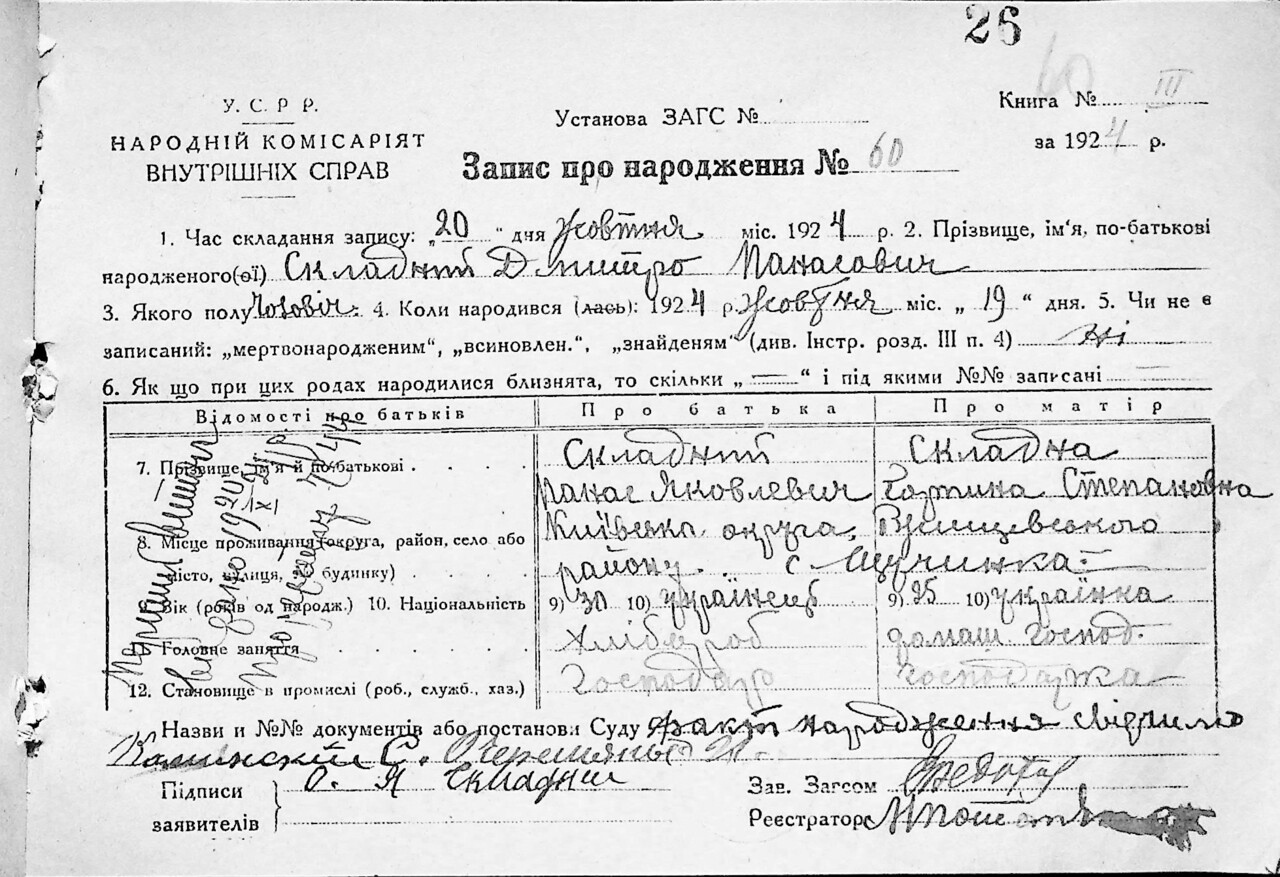 26
60
У. С. Р Р.
НАРОДНІЙ КОМІСАРІЯТ
ВНУТРІШНІХ СПРАВ
Установа ЗАГС №
Книга № III
за 1924 р.
Запис про народження № 60
1. Час складання запису: „20" дня жовтня міс. 1924 р. 2. Прізвище, ім'я, по-батькові
народженого(ої) Складний Дмитро Панасович
3. Якого полу чоловіч. 4. Коли народився (лась): 1924 р. жовтня міс. „19" дня. 5. Чи не є
записаний: „мертвонародженим", „всиновлен.", „знайденям" (див. Інстр. розд. III п. 4) ні
6. Як що при цих родах народилися близнята, то скільки „—" і під якими №№ записані —
Відомості про батьків Про батька Про матір
7. Прізвище, ім'я й по-батькові Складний Складна
Панас Яковлевич Горпина Степановна
8. Місце проживання (округа, район, село або Київська округа, Ржищевського
місто, вулиця, № будинку) району с Щучинка
9. Вік (років од народж.) 10. Національність 9) 30 10) українець 9) 25 10) українка
11. Головне заняття Хлібороб домаш. господ.
12. Становище в промислі (роб., служб., хаз.) Господар господарка
Назви и №№ документів або постанови Суду факт народження свідчили
Каминский С.
Підписи
заявителів
О. Я Складний
Зав. Загсом
Реєстратор